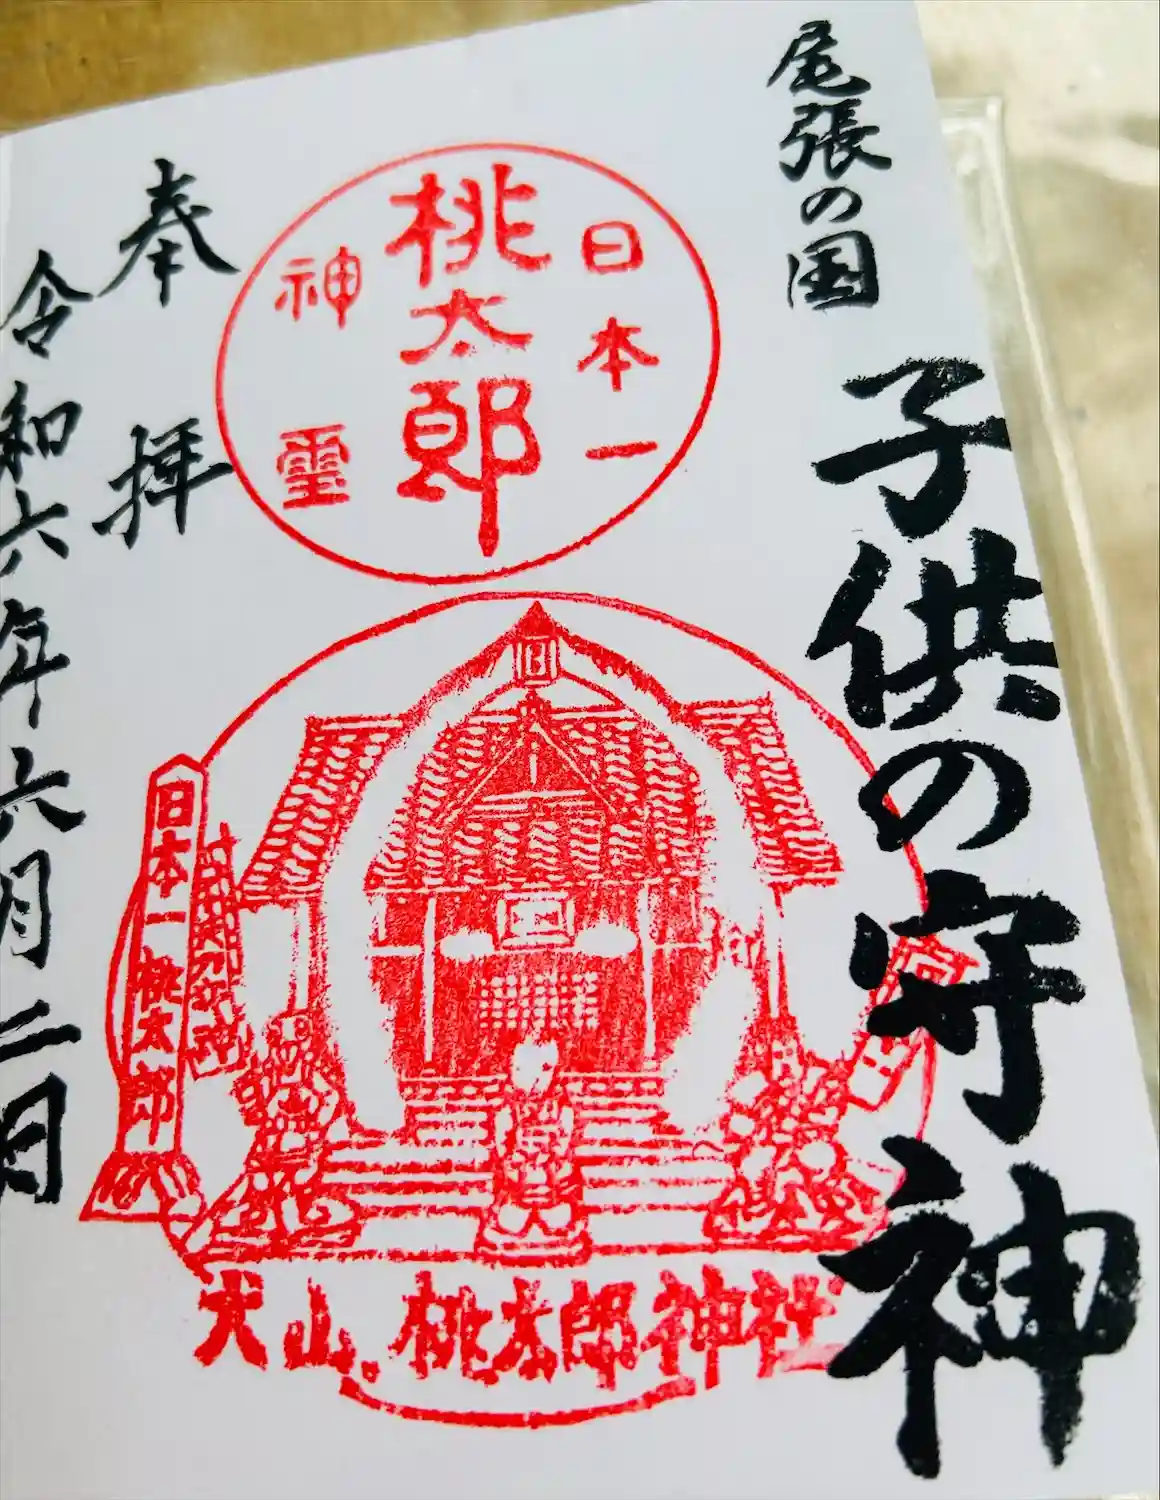 尾張の国
子供の守神
日本一
桃太郎
神霊
奉拝
令和六年六月二日
日本一桃太郎
犬山 桃太郎神社